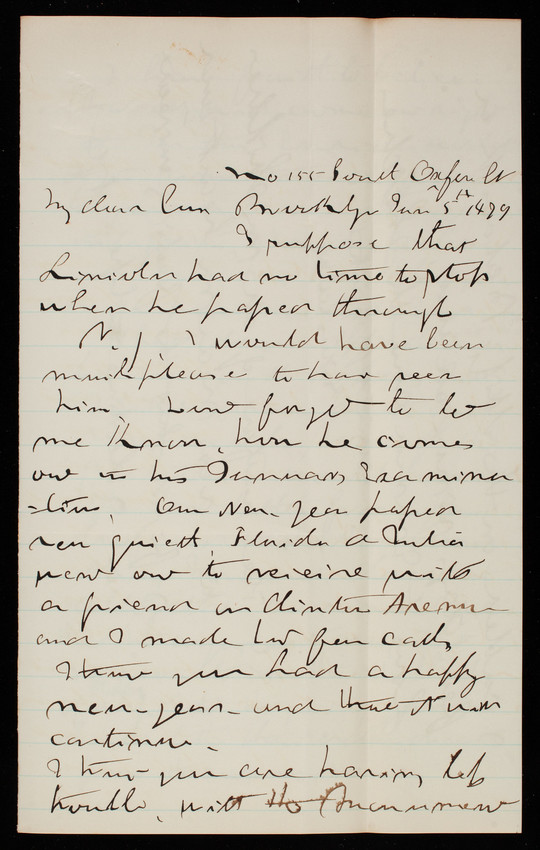 No 155 South Oxford St
My dear Brooklyn Jan 5th 1879
I suppose that
Lincoln had no time to stop
when he passed through
N.Y. I would have been
much please to have seen
him. Dont forget to let
me Know, how he comes
out in his January Examina
-tion, Our New-year passed
very quiett, Florida &
went out to receive with
a friend on Clinton Avenue
and I made but few calls
I hope you had a happy
new-year- and that it will
continue.
I hope you are having less
trouble, with the Monument